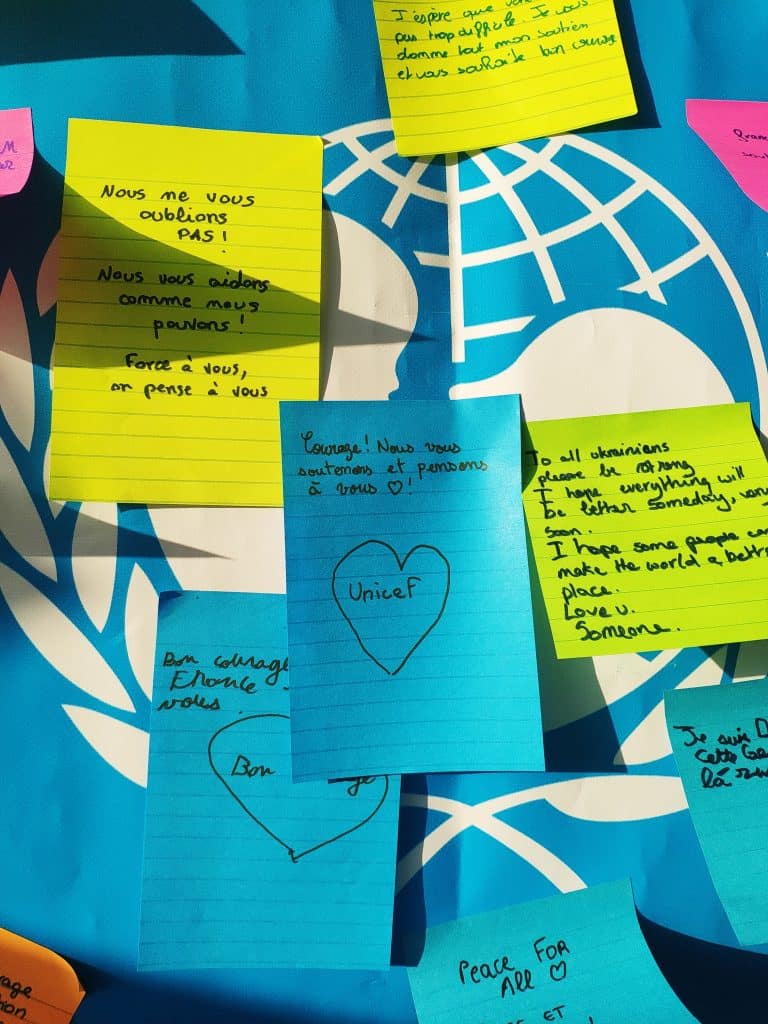 J'espère que
pas trop difficile. Je vous
domme tout mon soutien
et vous souhaite bon courage
Nous ne vous
oublions
PAS!
Nous vous aidons
comme nous
pouvons!
Force à vous,
on pense à vous
Courage! Nous vous
soutenons et pensons
à vous ♡!
Unicef
To all ukrainians
please be strong
I hope everything will
be better someday, very
soon.
I hope some people can
make the world a better
place.
Love u.
Someone.
Bon courage
vous
Bon
Je suis
Peace For
All ♡
ET